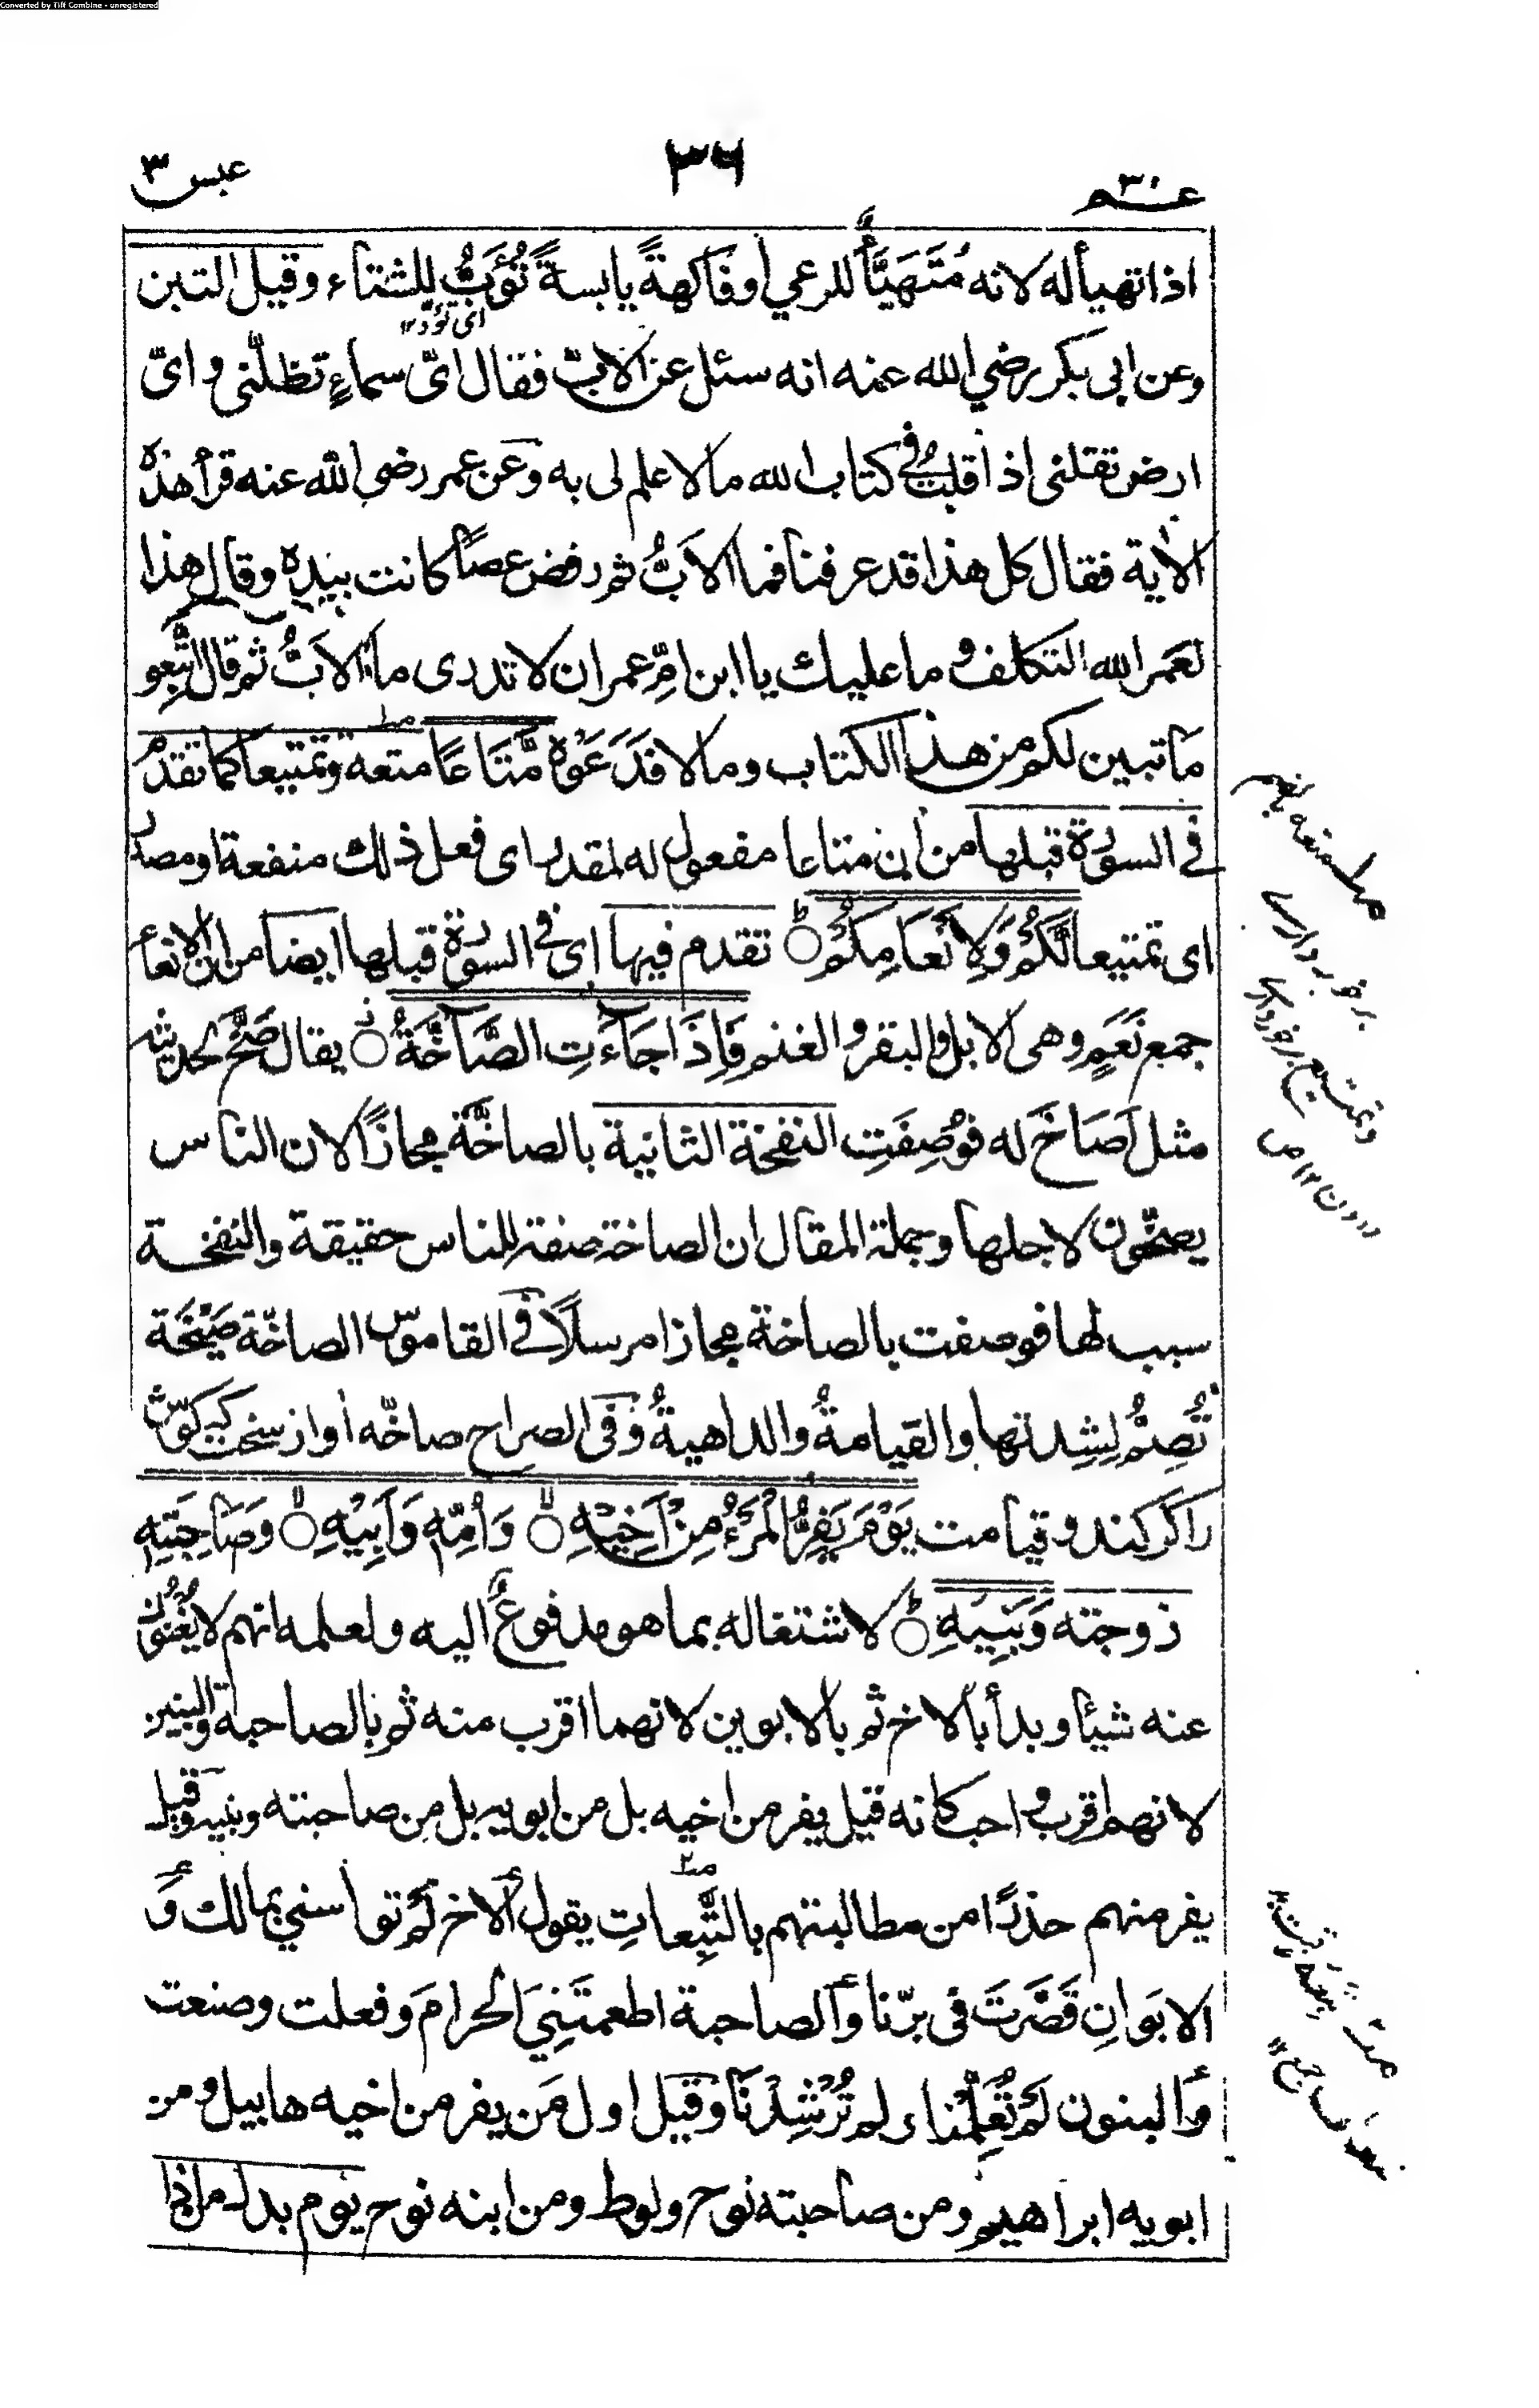 Converted by Tiff Combine - unregistered
عم ٣٠
٣٦
عبس ٣
اذا تهيأ له لانه مُتَهَيَّأٌ للرعي او فاكهةً يابسةً تُؤَبُّ للشتاء وقيل التبن
وعن ابى بكر رضي الله عنه انه سئل عن الابّ فقال اىّ سماءٍ تظلّنى و اىّ
ارض تقلنى اذا قلتُ فى كتاب الله ما لا علم لى به وعن عمر رضى الله عنه قرأ هذه
الاٰية فقال كل هذا قد عرفنا فما الاَبُّ ثم رفض عصاً كانت بيده وقال هذا
لعَمر الله التكلف وما عليك يا ابن امِّ عمر ان لا تدرى ما الاَبُّ ثم قال اتَّبِعو
ما تبين لكم من هذا الكتاب وما لا فَدَعَوْه مَّتَاعًا متعة وتمتيعا كما تقدم
فى السورة قبلها من ان متاعا مفعول له لمقدر اى فعل ذلك منفعة او مصدر
اى تمتيعا لَّكُمْ وَلِاَنْعَامِكُمْ تقدم فيها اى فى السورة قبلها ايضا من ان الانعام
جمع نَعَمٍ وهى الابل والبقر والغنم فَاِذَا جَآءَتِ الصَّآخَّةُ يقال صَخَّ لحديثه
مثل اَصَاخَ له فوُصِفَتِ النفخة الثانية بالصاخَّة مجازًا لان الناس
يصخّون لاجلها وجملة المقال ان الصاخة صفة للناس حقيقة والنفخة
سبب لها فوصفت بالصاخة مجازا مرسلًا فى القاموس الصاخّة صَيْحَة
تُصِمُّ لِشِدتها والقيامةُ والداهيةُ وفى الصراح صاخّه اواز سخت كه كوش
را كر كند وقيامت يَوْمَ يَفِرُّ الْمَرْءُ مِنْ اَخِيْهِ وَاُمِّهٖ وَاَبِيْهِ وَصَاحِبَتِهٖ
زوجته وَبَنِيْهِ لاشتغاله بما هو مدفوعٌ اليه ولعلمه انهم لا يُغْنُوْنَ
عنه شيئا وبدأ بالاخ ثم بالابوين لانهما اقرب منه ثم بالصاحبة والبنين
لانهم اقرب و احب كانه قيل يفر من اخيه بل من ابويه بل من صاحبته وبنيه وقيل
يفر منهم حذرًا من مطالبتهم بالتَّبِعاتِ يقول الاخ لم تواسني بمالك و
الابوانِ قَصَّرَتَ فى برّنا والصاحبة اطعمتَنِيَ الحرامَ وفعلت وصنعت
والبنون لم تُعَلِّمْنا ولم تُرْشِدْنَا وقيل اول مَن يفر من اخيه هابيل ومن
ابويه ابراهيم ومن صاحبته نوح ولوط ومن ابنه نوح يوم بدل من اذا